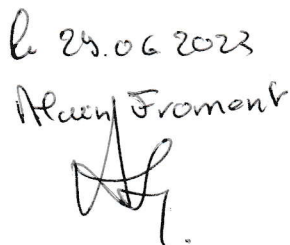 le 29.06 2023
Alain Froment